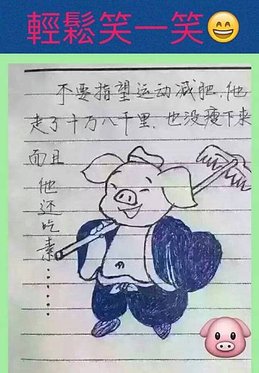 輕鬆笑一笑😄
不要指望运动减肥，他
走了十万八千里，也没瘦下来
而且
他还吃素……